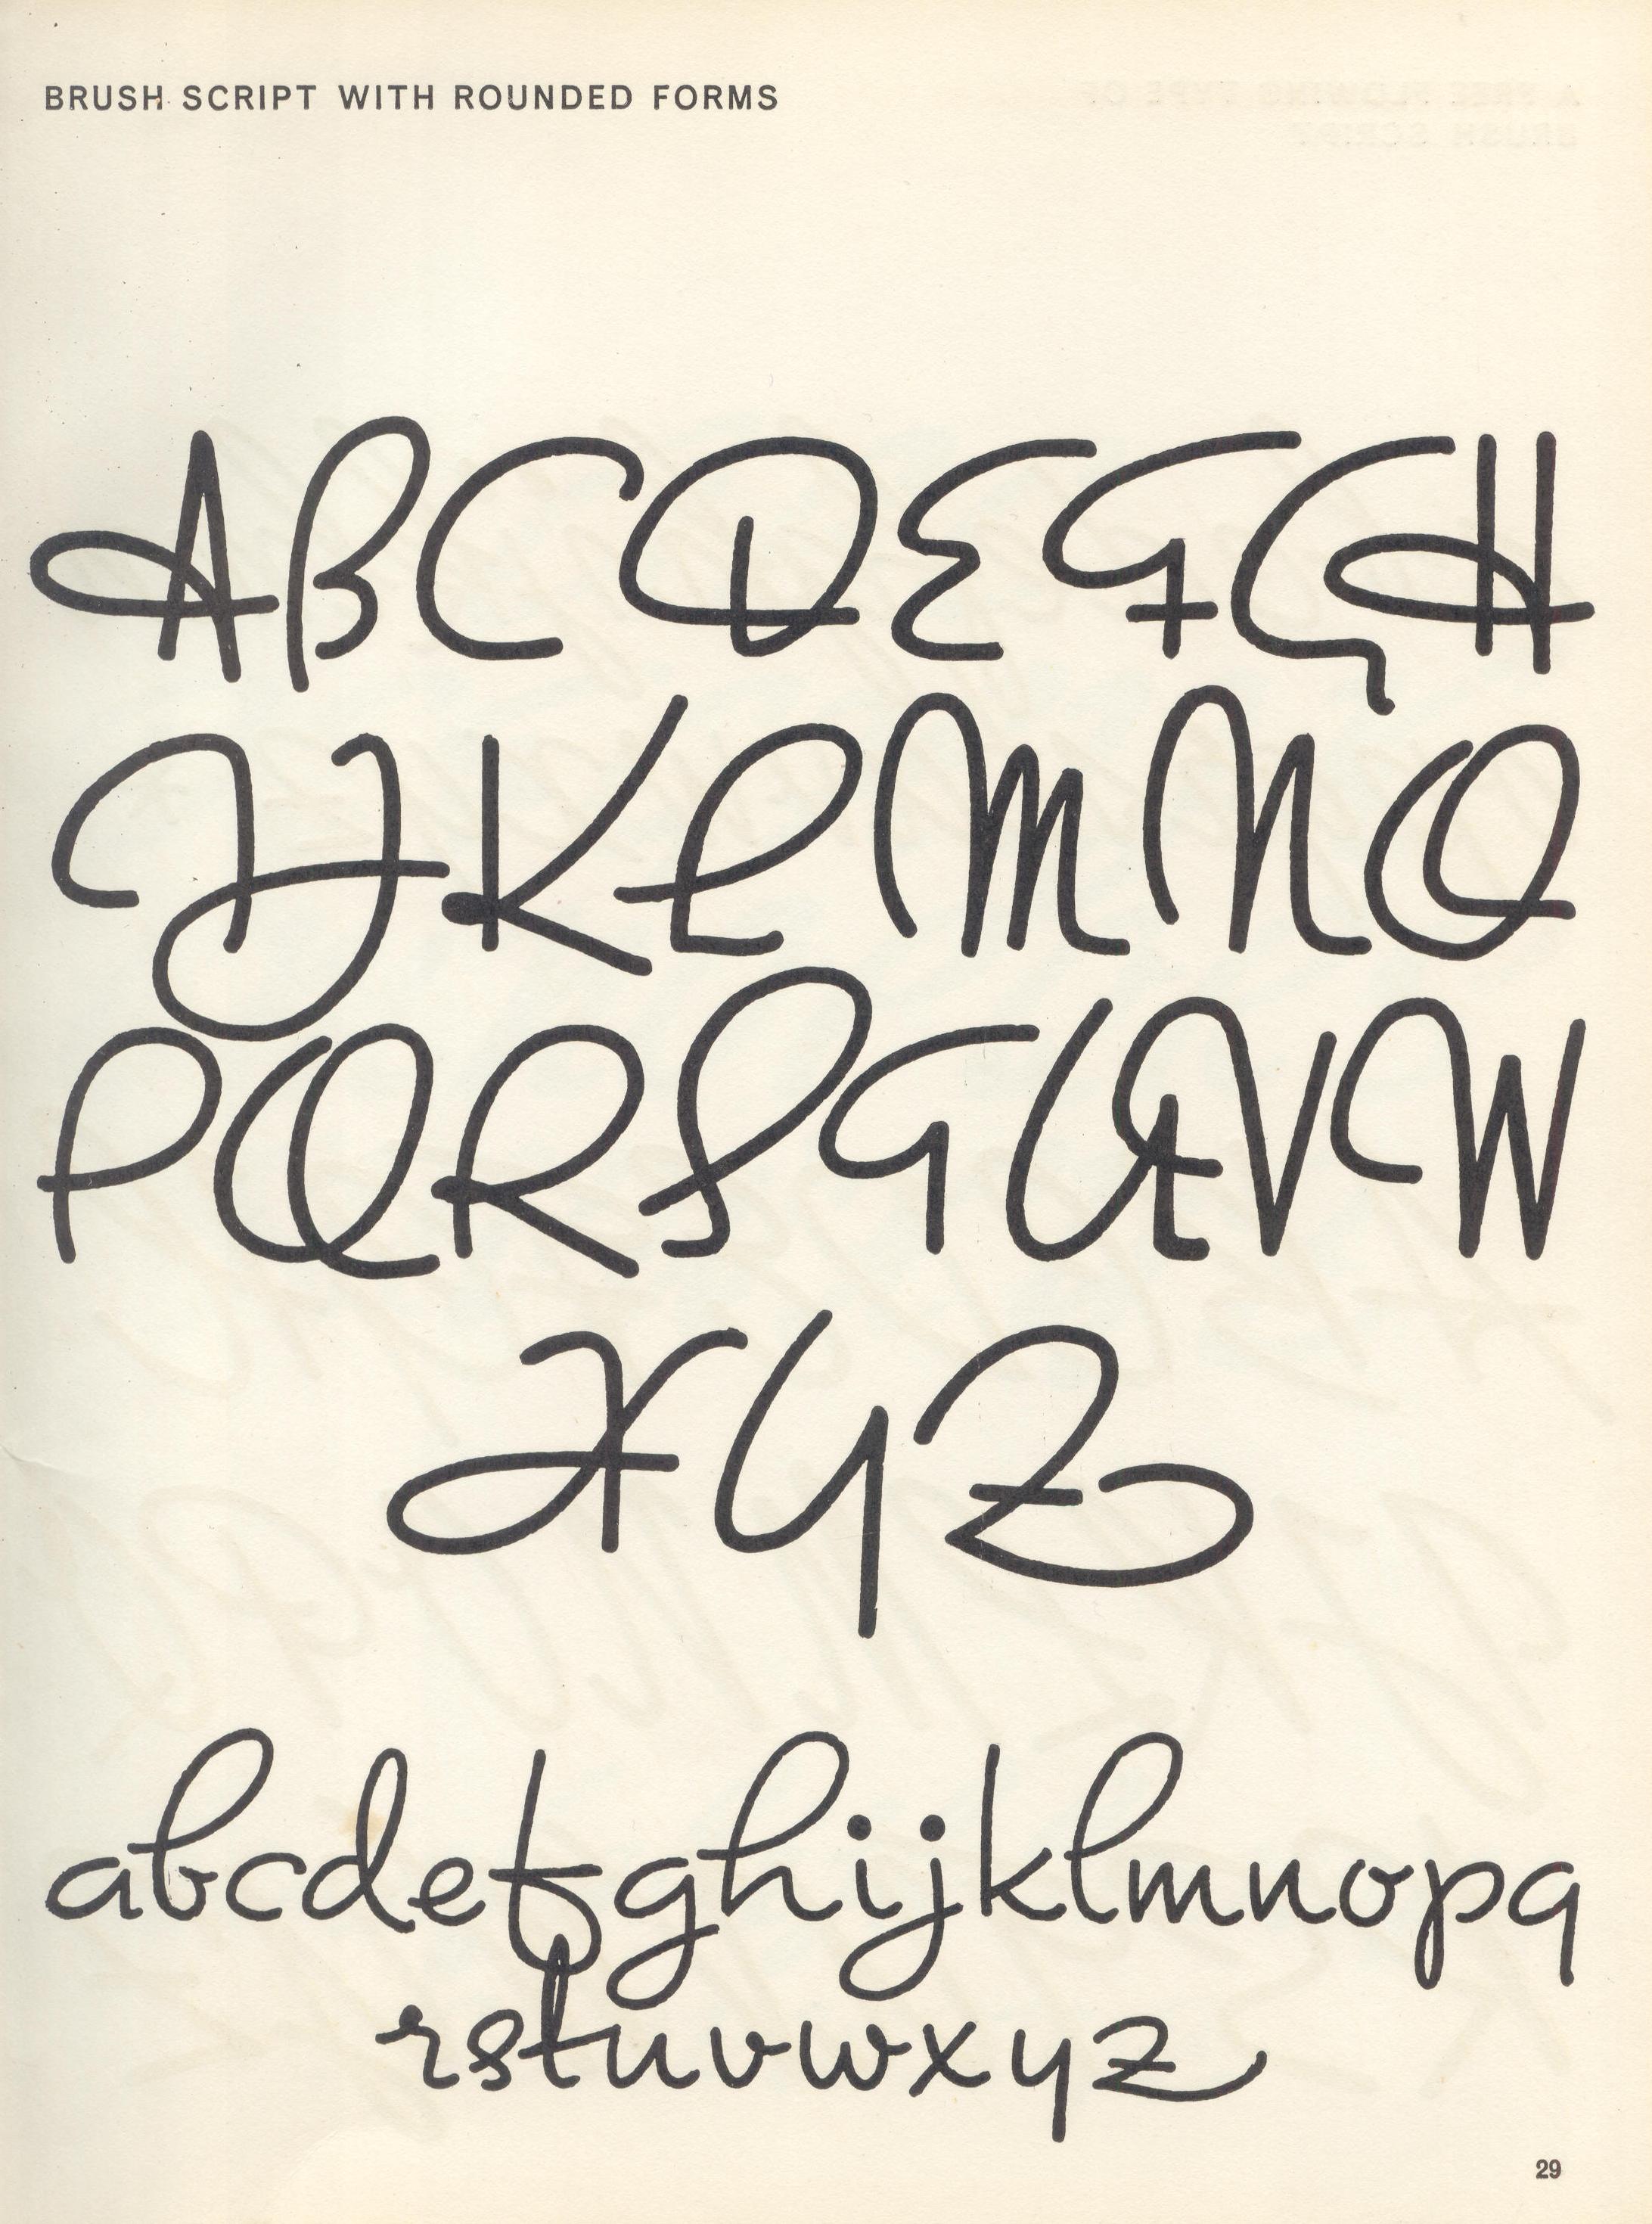 BRUSH SCRIPT WITH ROUNDED FORMS
ABCDEFGH
IJKLMNO
PQRSTUVW
XYZ
abcdefghijklmnopq
rstuvwxyz
29